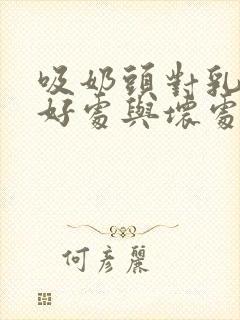 吸奶頭對乳
好處與壞處
何彥麗